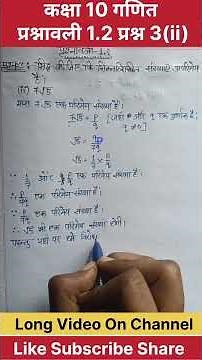 कक्षा 10 गणित
प्रश्नावली 1.2 प्रश्न 3(ii)
सिद्ध कीजिए कि निम्नलिखित संख्याएँ अपरिमेय
हैं।
(ii) 7√5
माना 7√5 एक परिमेय संख्या है।
7√5 = p/q
√5 = p/7q
√5 = 1/7 × p/q
∴ 1/7 और p/q एक परिमेय संख्या है।
∴ p/7q एक परिमेय संख्या है।
∴ √5 भी एक परिमेय संख्या होगी।
परन्तु यहाँ पर हमें विरोधा
Long Video On Channel
Like Subscribe Share